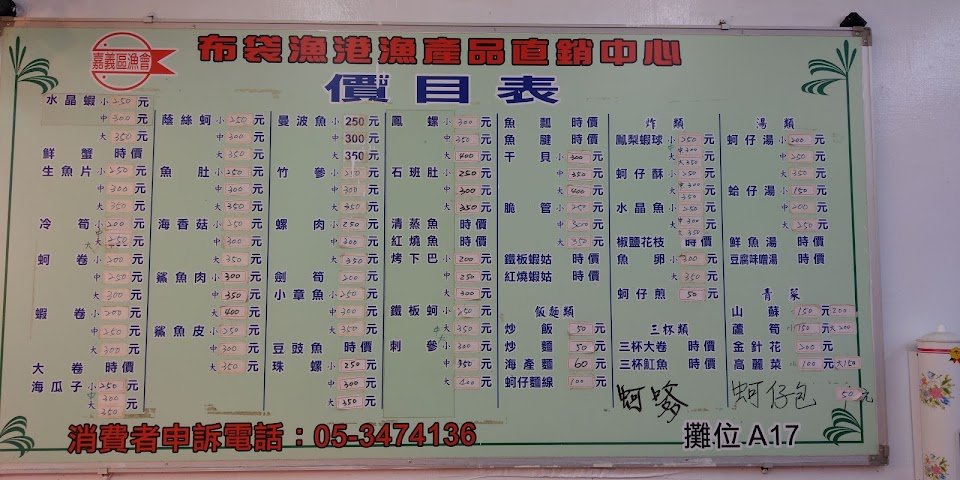 嘉義區漁會
布袋漁港漁產品直銷中心
價目表
水晶蝦 小 250 元
中 300 元
大 350 元
鮮蟹 時價
生魚片 小 250 元
中 300 元
大 350 元
冷筍 小 200 元
大 250 元
蚵卷 小 200 元
中 250 元
大 300 元
蝦卷 小 200 元
大 300 元
大卷 時價
海瓜子 小 250 元
中 300 元
大 350
蔭絲蚵 小 250 元
中 300 元
大 350 元
魚肚 小 250 元
中 300 元
大 350 元
海香菇 小 250 元
中 300 元
大 350 元
鯊魚肉 小 300 元
中 350 元
大 400 元
鯊魚皮 小 250 元
中 300 元
大 350 元
曼波魚 小 250 元
中 300 元
大 350 元
竹參 小 250 元
中 300 元
大 350 元
螺肉 小 250 元
中 300 元
大 350 元
劍筍 200 元
小章魚 小 250 元
中 300 元
大 350 元
豆豉魚 時價
珠螺 小 250 元
中 300 元
大 350 元
鳳螺 小 300 元
中 350 元
大 400 元
石班肚 小 250 元
中 300 元
大 350 元
清蒸魚 時價
紅燒魚 時價
烤下巴 小 200 元
中 250 元
大 300 元
鐵板蚵 小 250 元
大 350 元
刺參 小 300 元
中 350 元
大 400 元
魚瓢 時價
魚腱 時價
干貝 小 300 元
中 350 元
大 400 元
脆管 小 250 元
中 300 元
大 350 元
鐵板蝦姑 時價
紅燒蝦姑 時價
飯麵類
炒飯 50 元
炒麵 50 元
海產麵 60 元
蚵仔麵線 100 元
炸類
鳳梨蝦球 小 250 元
中 300
大 350 元
蚵仔酥 小 250 元
中 300 元
350
水晶魚 小 250 元
中 300 元
大 350
椒鹽花枝 時價
魚卵 小 300 元
蚵仔煎 50 元
三杯類
三杯大卷 時價
三杯魟魚 時價
蚵嗲
湯類
蚵仔湯 小 200 元
中 250 元
大 350 元
蛤仔湯 小 150 元
中 200 元
大 250 元
鮮魚湯 時價
豆腐味噌湯 時價
青菜
山蘇 150 元 200
蘆筍 小 150 元 大 200
金針花 200 元
高麗菜 小 100 元 大 150
蚵仔包 50 元
消費者申訴電話：05-3474136
攤位 A17